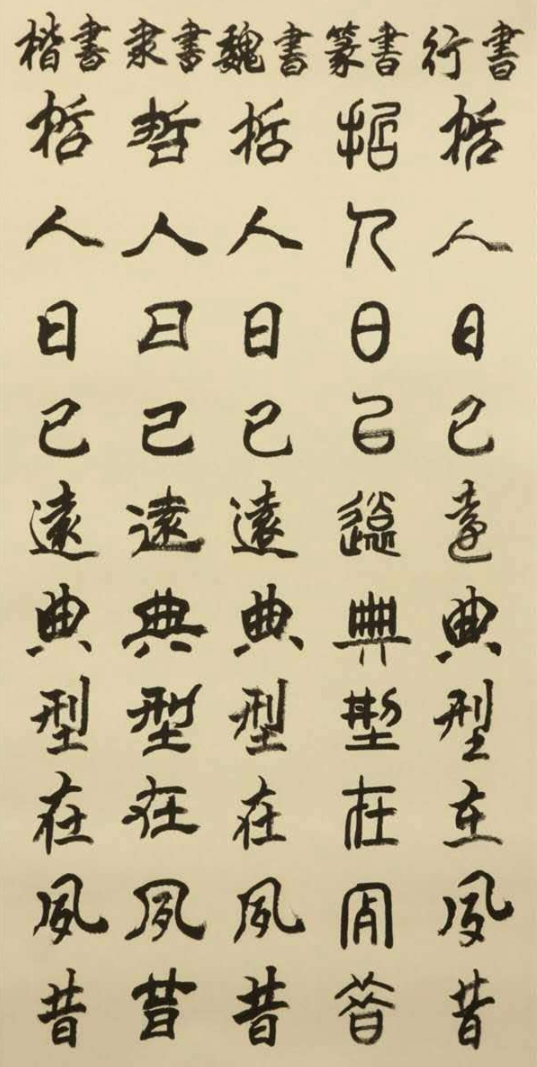 行書哲人日已遠典型在夙昔
篆書哲人日已遠典型在夙昔
魏書哲人日已遠典型在夙昔
隶書哲人日已遠典型在夙昔
楷書哲人日已遠典型在夙昔